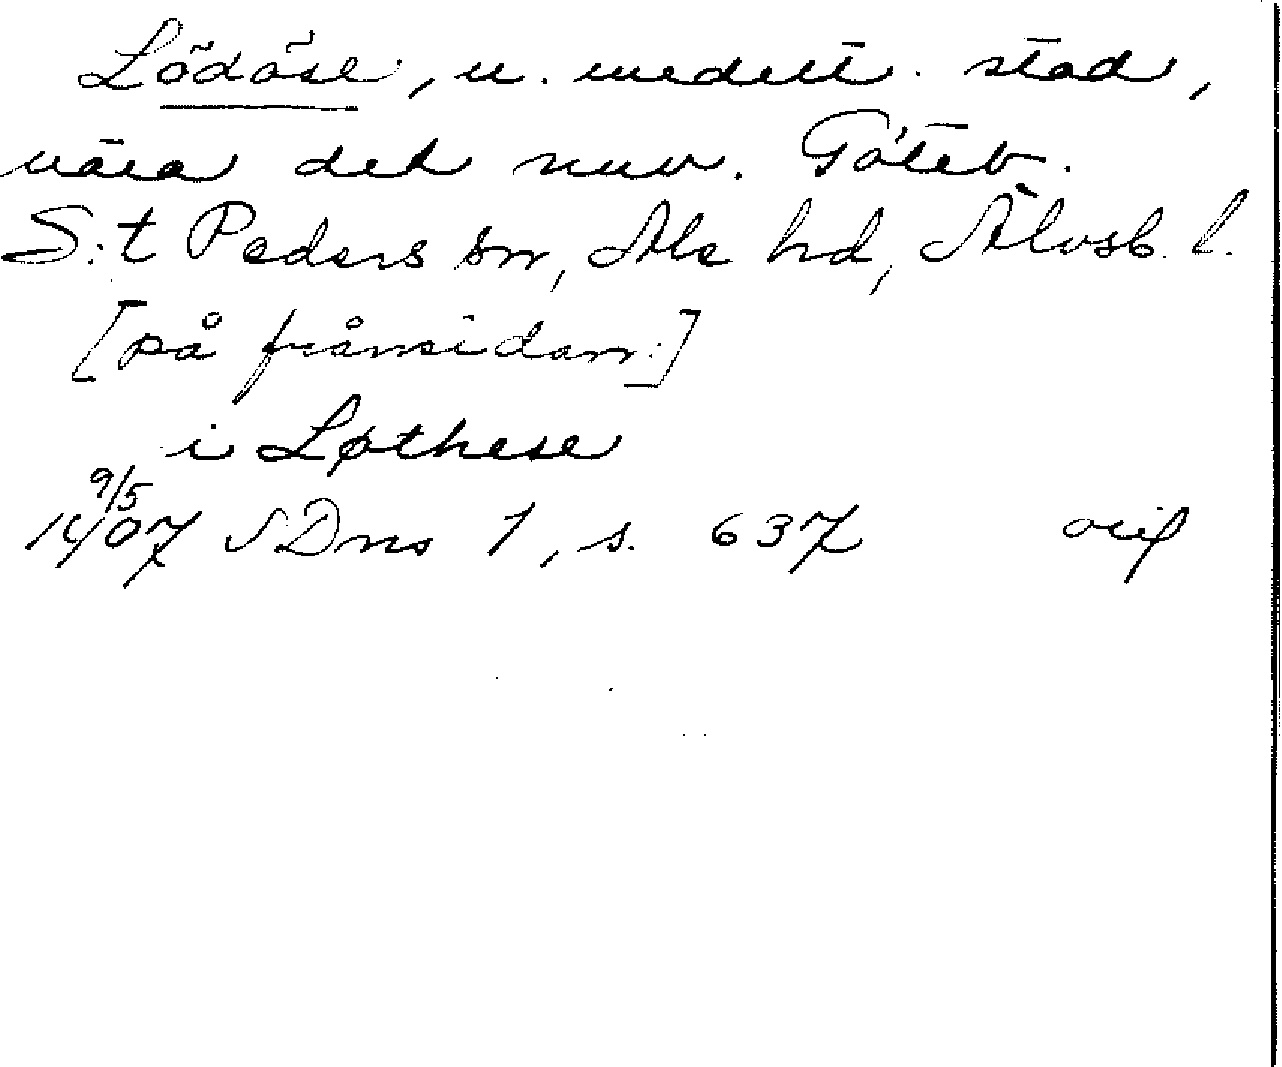 Lödöse, u. medelt. stad,
nära det nuv. Göteb.
S:t Peders sn, Ale hd, Älvsb. l.
[på frånsidan:]
i Løthese
9/5
1407 SDns 1, s. 637 orig